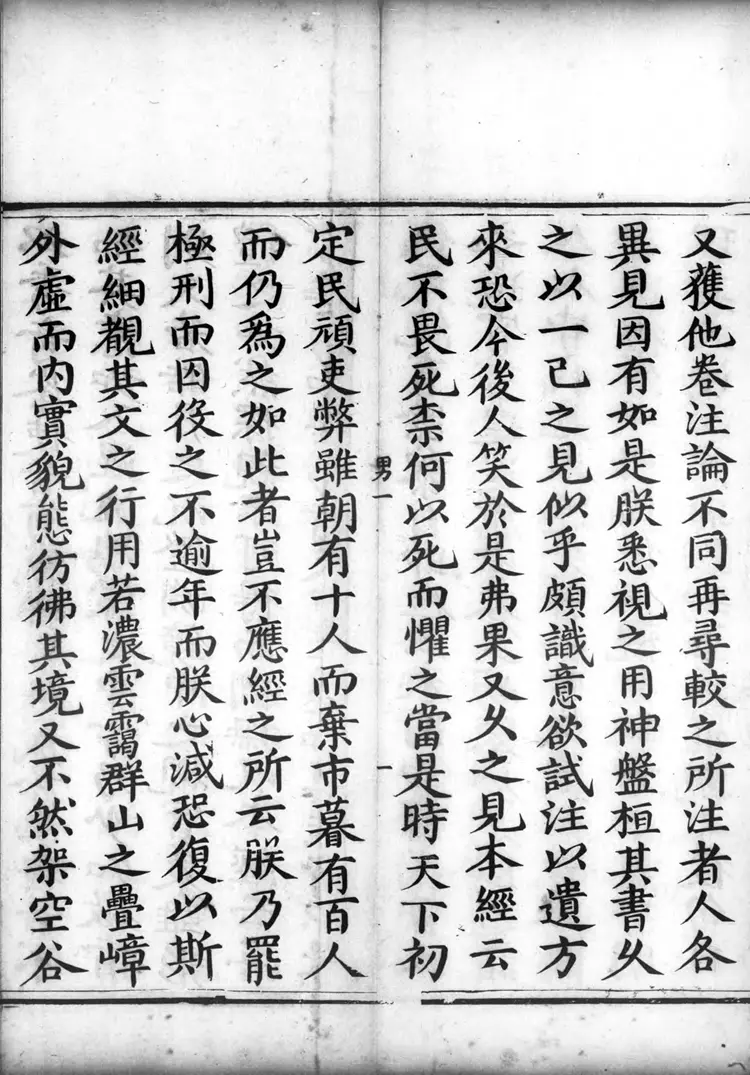 又獲他卷注論不同再尋較之所注者人各
異見因有如是朕悉視之用神盤桓其書久
之以一己之見似乎頗識意欲試注以遺方
來恐今後人笑於是弗果又久之見本經云
民不畏死柰何以死而懼之當是時天下初
男一
一
定民頑吏弊雖朝有十人而棄市暮有百人
而仍爲之如此者豈不應經之所云朕乃罷
極刑而囚役之不逾年而朕心減恐復以斯
經細覩其文之行用若濃雲靄群山之疊嶂
外虛而内實貌態彷彿其境又不然架空谷